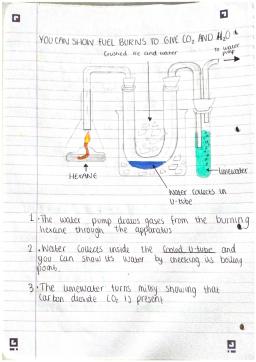 YOU CAN SHOW FUEL BURNS TO GIVE CO₂ AND H₂O
Crushed ice and water
to water
pump
HEXANE
limewater
Water collects in
U-tube
1. The water pump draws gases from the burning
hexane through the apparatus
2. Water collects inside the cooled U-tube and
you can show its water by checking its boiling
point.
3. The limewater turns milky showing that
carbon dioxide CO₂ is present